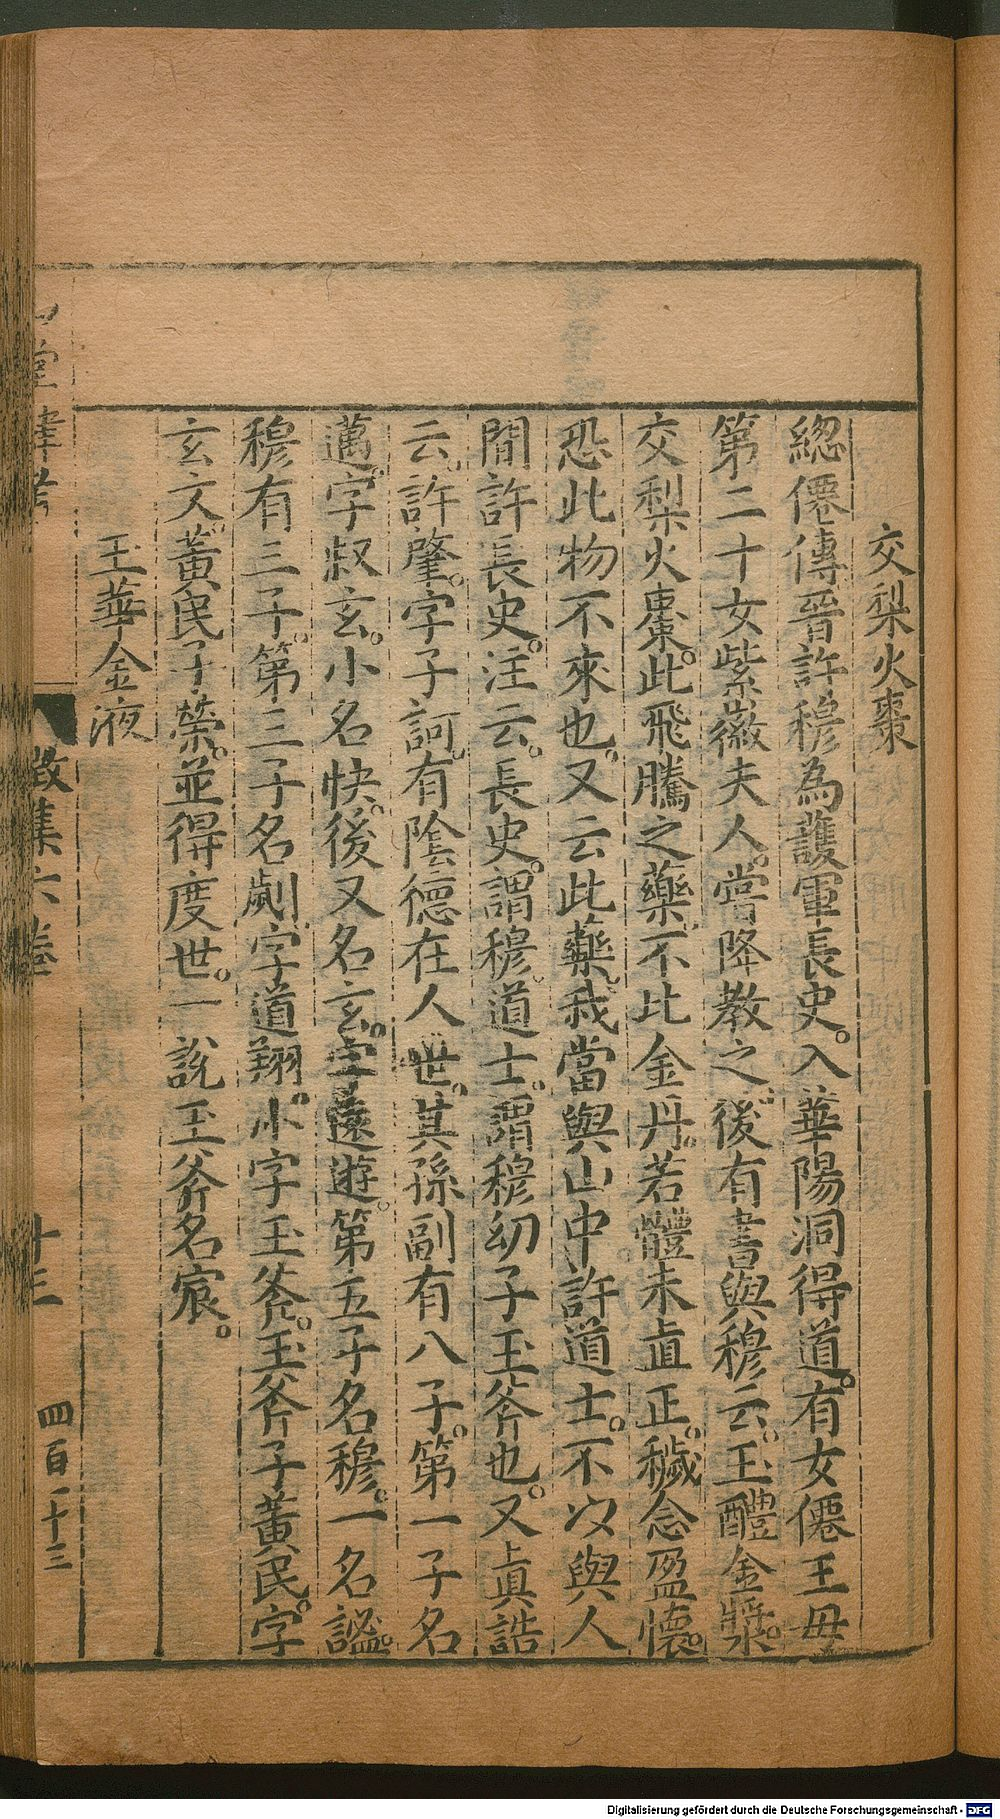 交梨火棗
緫僊傳晉許穆為護軍長史。入華陽洞得道。有女僊王母
第二十女紫微夫人。嘗降教之。後有書與穆云。玉醴金漿。
交梨火棗。此飛騰之藥。不比金丹。若體未眞正。穢念盈懷。
恐此物不來也。又云此藥。我當與山中許道士。不以與人
間許長史。注云。長史。謂穆。道士。謂穆幼子玉斧也。又眞誥
云。許肇。字子訶。有陰德在人世。其孫副有八子。第一子名
邁。字叔玄。小名快。後又名玄。字遠遊。第五子名穆。一名謐。
穆有三子。第三子名劌。字道翔。小字玉斧。玉斧子黃民。字
玄文。黃民子榮。並得度世。一說玉斧名宸。
玉華金液
堂肆考
徵集六卷
十三
四百一十三
Digitalisierung gefördert durch die Deutsche Forschungsgemeinschaft - DFG